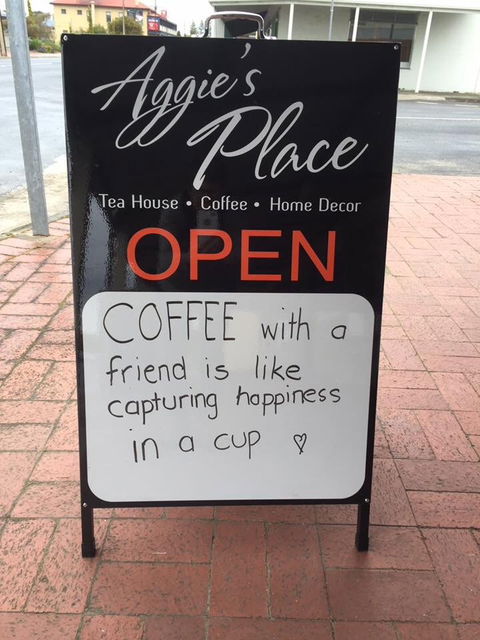 Aggie's
Place
Tea House • Coffee • Home Decor
OPEN
COFFEE with a
friend is like
capturing happiness
in a cup ♡